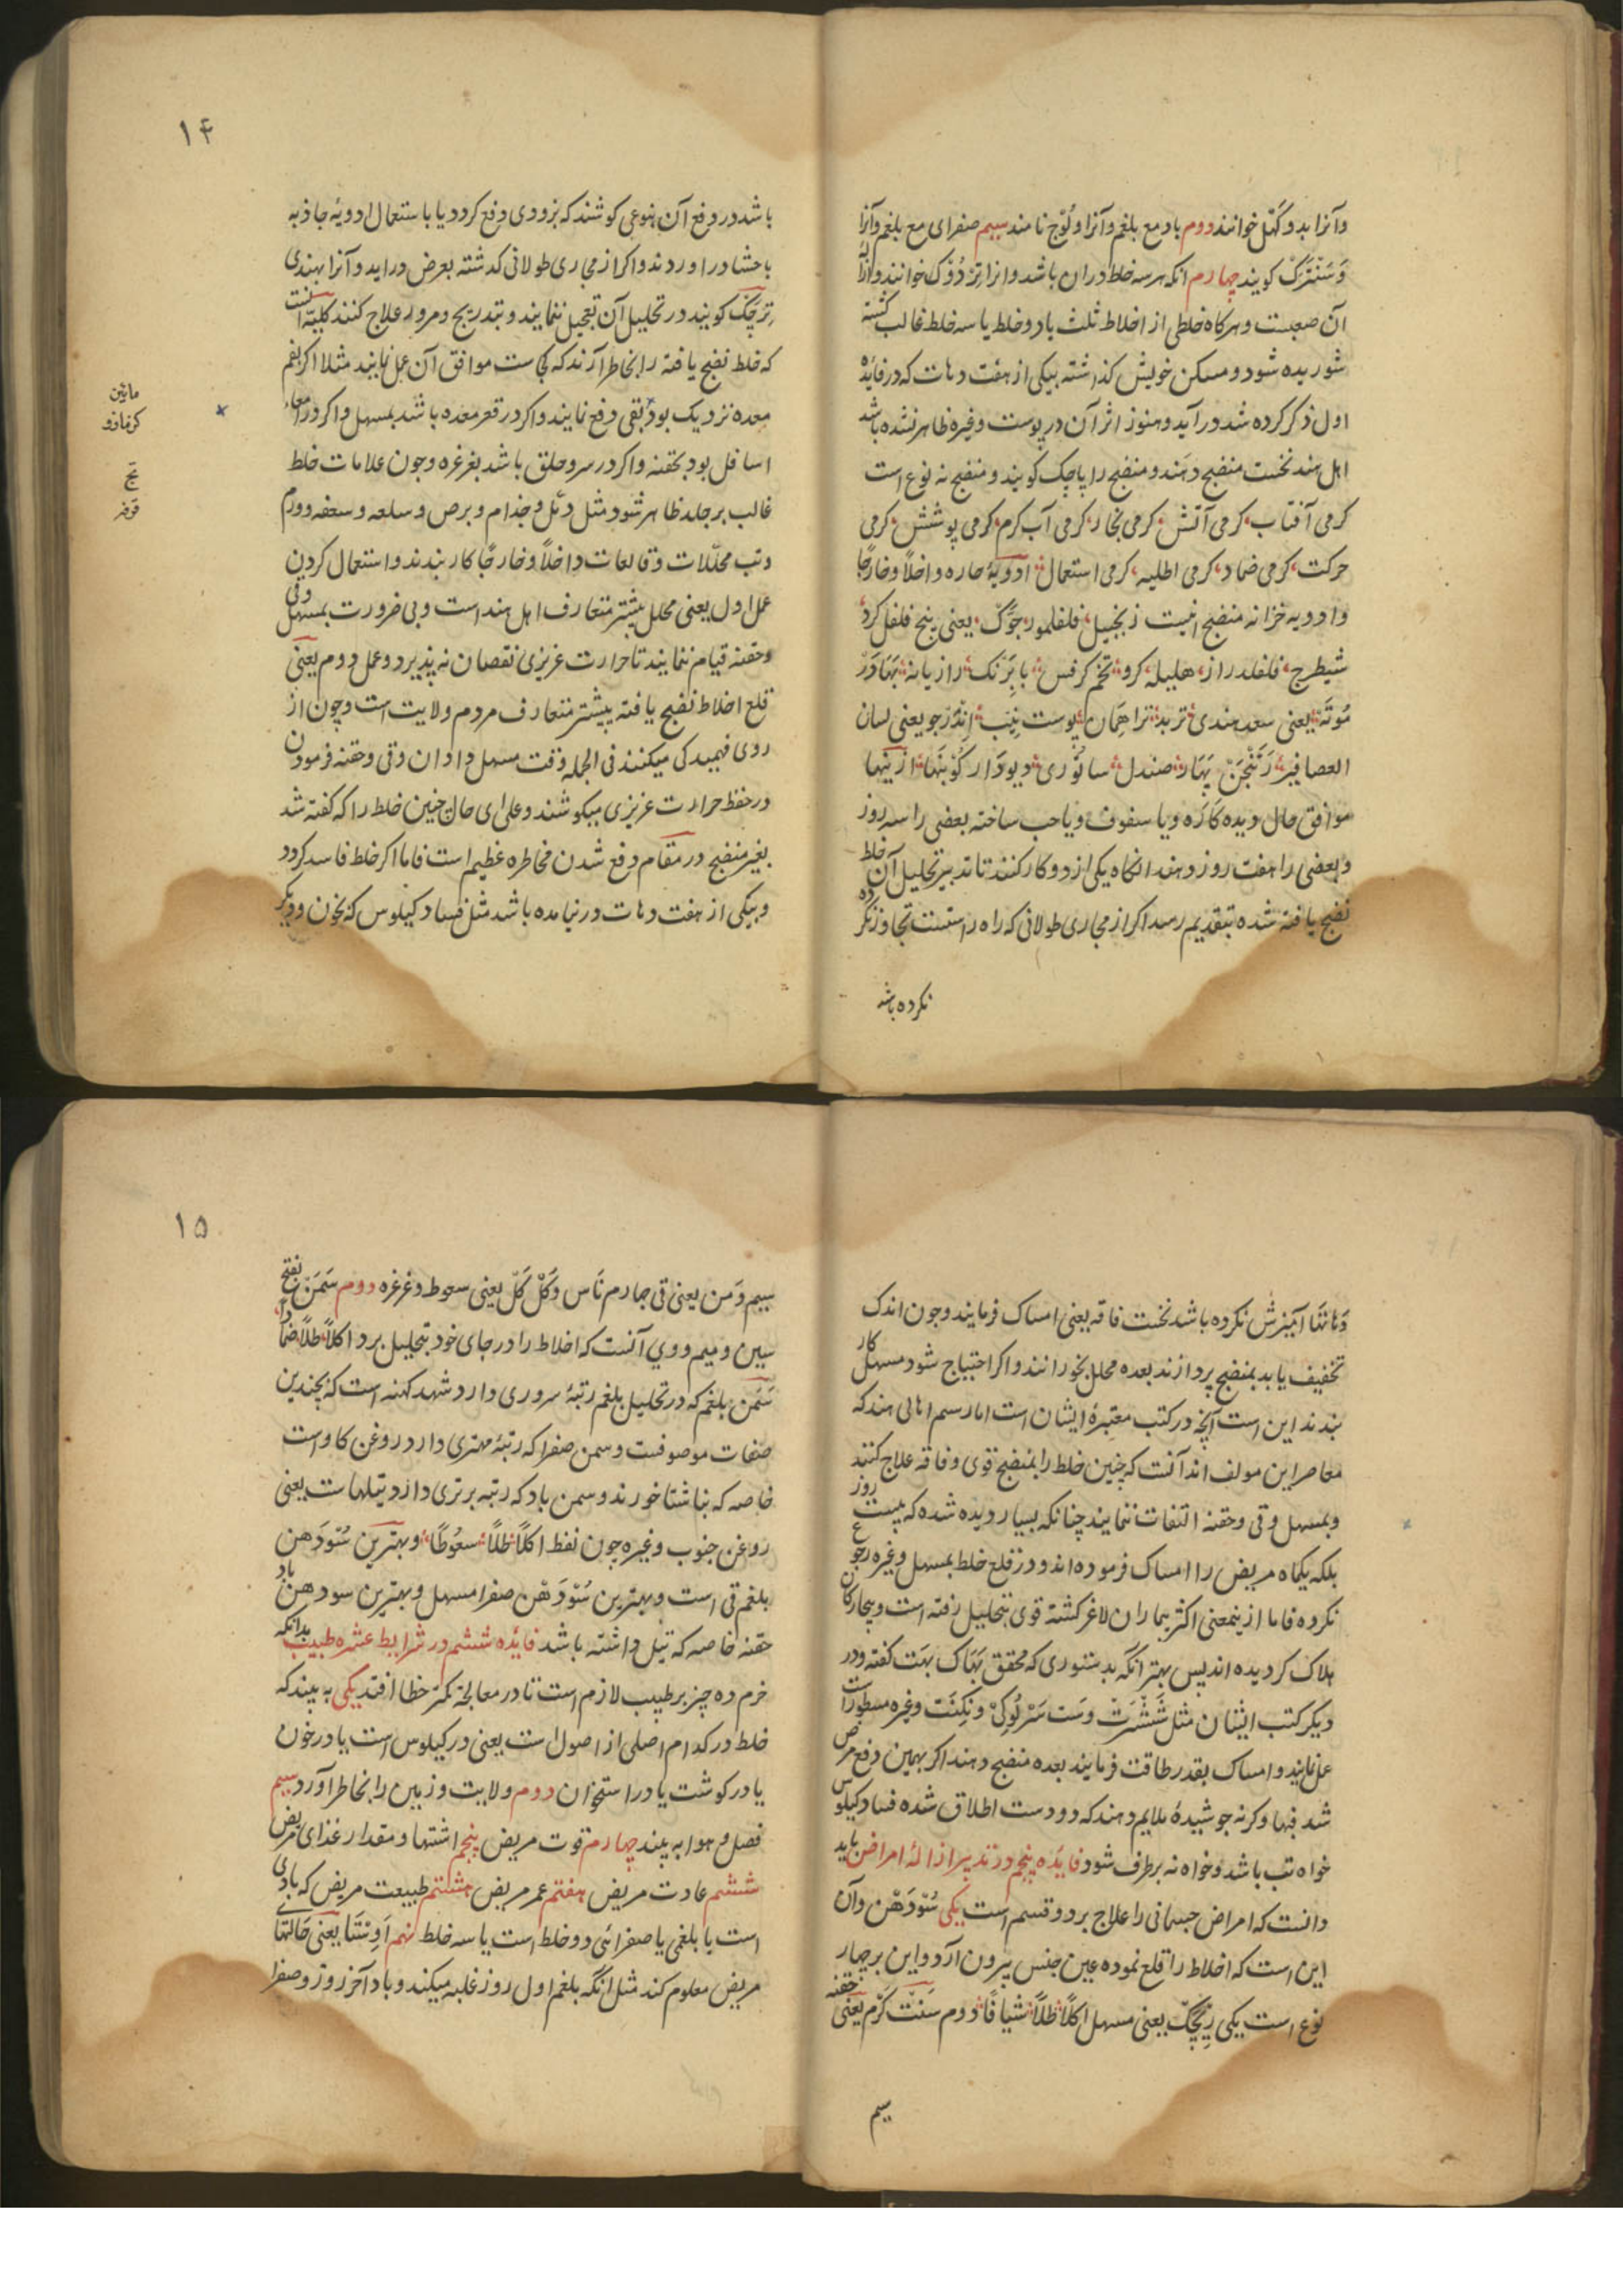 وآنرا بد و کهل خوانند دوم باد مع بلغم وآنرا ولوج نامند سیم صفرای مع بلغم وآنرا
وسنترک کویند چهارم انکه هرسه خلط دران باشد وانرا تردوک خوانند وازاله
آن صعبست وهرکاه خلطی از اخلاط ثلث یا دو خلط یا سه خلط غالب کشته
شوریده شود ومسکن خویش کذاشته بیکی از هفت دهات که در فایده
اول ذکر کرده شد درآید وهنوز اثر آن در پوست وغیره ظاهر نشده باشد
اهل هند نخست منضج دهند ومنضج را پاچک کویند ومنضج نه نوع است
کرمی آفتاب کرمی آتش کرمی بخار کرمی آب کرم کرمی پوشش کرمی
حرکت کرمی ضماد کرمی اطلیه کرمی استعمال ادویهٔ حاره داخلاً وخارجاً
وادویه خزانه منضج اینست زنجبیل فلفلمور جوک یعنی بیخ فلفل کرد
شیطرج فلفلدراز هلیله کرو تخم کرفس بابرنک رازیانه بهادر
موته یعنی سعد هندی تربد تراهمان پوست نیب اندرجو یعنی لسان
العصافیر رتنجن بهار صندل سانوری دیودار کونبها ازینها
موافق حال دیده کاره ویا سفوف ویا حب ساخته بعضی را سه روز
وبعضی را هفت روز دهند انکاه یکی از دو کار کنند تا تدبیر تحلیل آن خلط
نضج یافته شده بتقدیم رسد اکر از مجاری طولانی که راه راستست تجاوز نکرده
نکرده باشد
۱۴
باشد در دفع آن بنوعی کوشند که بزودی دفع کردد یا باستعمال ادویهٔ جاذبه
باحشا دراوردند واکر از مجاری طولانی کذشته بعرض دراید وآنرا بهندی
ترچک کویند در تحلیل آن تعجیل ننمایند وبتدریج ومرور علاج کنند کلیّه آنست
که خلط نضج یافته را بخاطر آرند که کجاست موافق آن عمل نمایند مثلا اکر بفم
معده نزدیک بود بقی دفع نمایند واکر در قعر معده باشد بمسهل واکر در امعاء
اسافل بود بحقنه واکر در سر وحلق باشد بغرغره وچون علامات خلط
غالب بر جلد ظاهر شود مثل دمل وجذام وبرص وسلعه وسعفه وورم
وتب محللات وقالعات داخلاً وخارجاً کار بندند واستعمال کردن
عمل اول یعنی محلل بیشتر متعارف اهل هند است وبی ضرورت بمسهل وقی
وحقنه قیام ننمایند تا حرارت عزیزی نقصان نه پذیرد وعمل دوم یعنی
قلع اخلاط نضج یافته بیشتر متعارف مردم ولایت است وچون از
روی فهمیدکی میکنند فی الجمله وقت مسهل دادان وقی وحقنه فرمودن
در حفظ حرارت عزیزی میکوشند وعلی ای حال چنین خلط را که کفته شد
بغیر منضج در مقام دفع شدن مخاطره عظیم است فاما اکر خلط فاسد کردد
وبیکی از هفت دهات درنیامده باشد مثل فساد کیلوس که بخون ودیکر
مائین
کزمازو
تج
قرفه
وهانتا آمیزش نکرده باشد نخست فاقه یعنی امساک فرمایند وچون اندک
تخفیف یابد بمنضج پردازند بعده محلل بخورانند واکر احتیاج شود مسهل کار
بندند این است آنچه در کتب معتبرهٔ ایشان است اما رسم اهالی هند که
معاصر این مولف اند آنست که چنین خلط را بمنضج قوی وفاقه علاج کنند
وبمسهل وقی وحقنه التفات ننمایند چنانکه بسیار دیده شده که بیست روز
بلکه یکماه مریض را امساک فرموده اند ودر قلع خلط بمسهل وغیره رجوع
نکرده فاما ازینمعنی اکثر بیماران لاغر کشته قوی بتحلیل رفته است وبیچارکان
هلاک کردیده اند پس بهتر انکه بدستوری که محقق بهاک بهت کفته ودر
دیکر کتب ایشان مثل ششرت وست سرلوکی ونکنت وغیره مسطوراست
عمل نمایند وامساک بقدر طاقت فرمایند بعده منضج دهند اکر بهمین دفع مرض
شد فبها وکرنه جوشیدهٔ ملایم دهند که دو دست اطلاق شده فساد کیلوس
خواه تب باشد وخواه نه برطرف شود فایده پنجم در تدبیر ازالهٔ امراض باید
دانست که امراض جسمانی را علاج بر دو قسم است یکی سودهن وآن
این است که اخلاط را قلع نموده عین جنس بیرون آرد واین بر چهار
نوع است یکی ریچک یعنی مسهل اکلاً طلاً شیافاً دوم سنت کرم یعنی حقنه
سیم
۱۵
سیم ومن یعنی قی چهارم ناس وکل کل یعنی سعوط وغرغره دوم سمن بفتح
سین ومیم ووی آنست که اخلاط را در جای خود بتحلیل برد اکلاً طلاً ضماداً
سمن بلغم که در تحلیل بلغم رتبهٔ سروری دارد شهد کهنه است که بچندین
صفات موصوفست وسمن صفرا که رتبهٔ مهتری دارد روغن کاو است
خاصه که بناشتا خورند وسمن باد که رتبه برتری دارد تیلهاست یعنی
روغن حبوب وغیره چون نفط اکلاً طلاً سعوطاً وبهترین سودهن
بلغم قی است وبهترین سودهن صفرا مسهل وبهترین سودهن باد
حقنه خاصه که تیل داشته باشد فایده ششم در شرایط عشره طبیب بدانکه
خرم ده چیز بر طبیب لازم است تا در معالجه کمتر خطا افتد یکی به بیند که
خلط در کدام اصلی از اصول است یعنی در کیلوس است یا در خون
یا در کوشت یا در استخوان دوم ولایت وزمین را بخاطر آورد سیم
فصل وهوا به بیند چهارم قوت مریض پنجم اشتها ومقدار غذای مریض
ششم عادت مریض هفتم عمر مریض هشتم طبیعت مریض که بادی
است یا بلغمی یا صفرائی دو خلط است یا سه خلط نهم اوستا یعنی حالتهاے
مریض معلوم کند مثل انکه بلغم اول روز غلبه میکند وباد آخر روز وصفرا